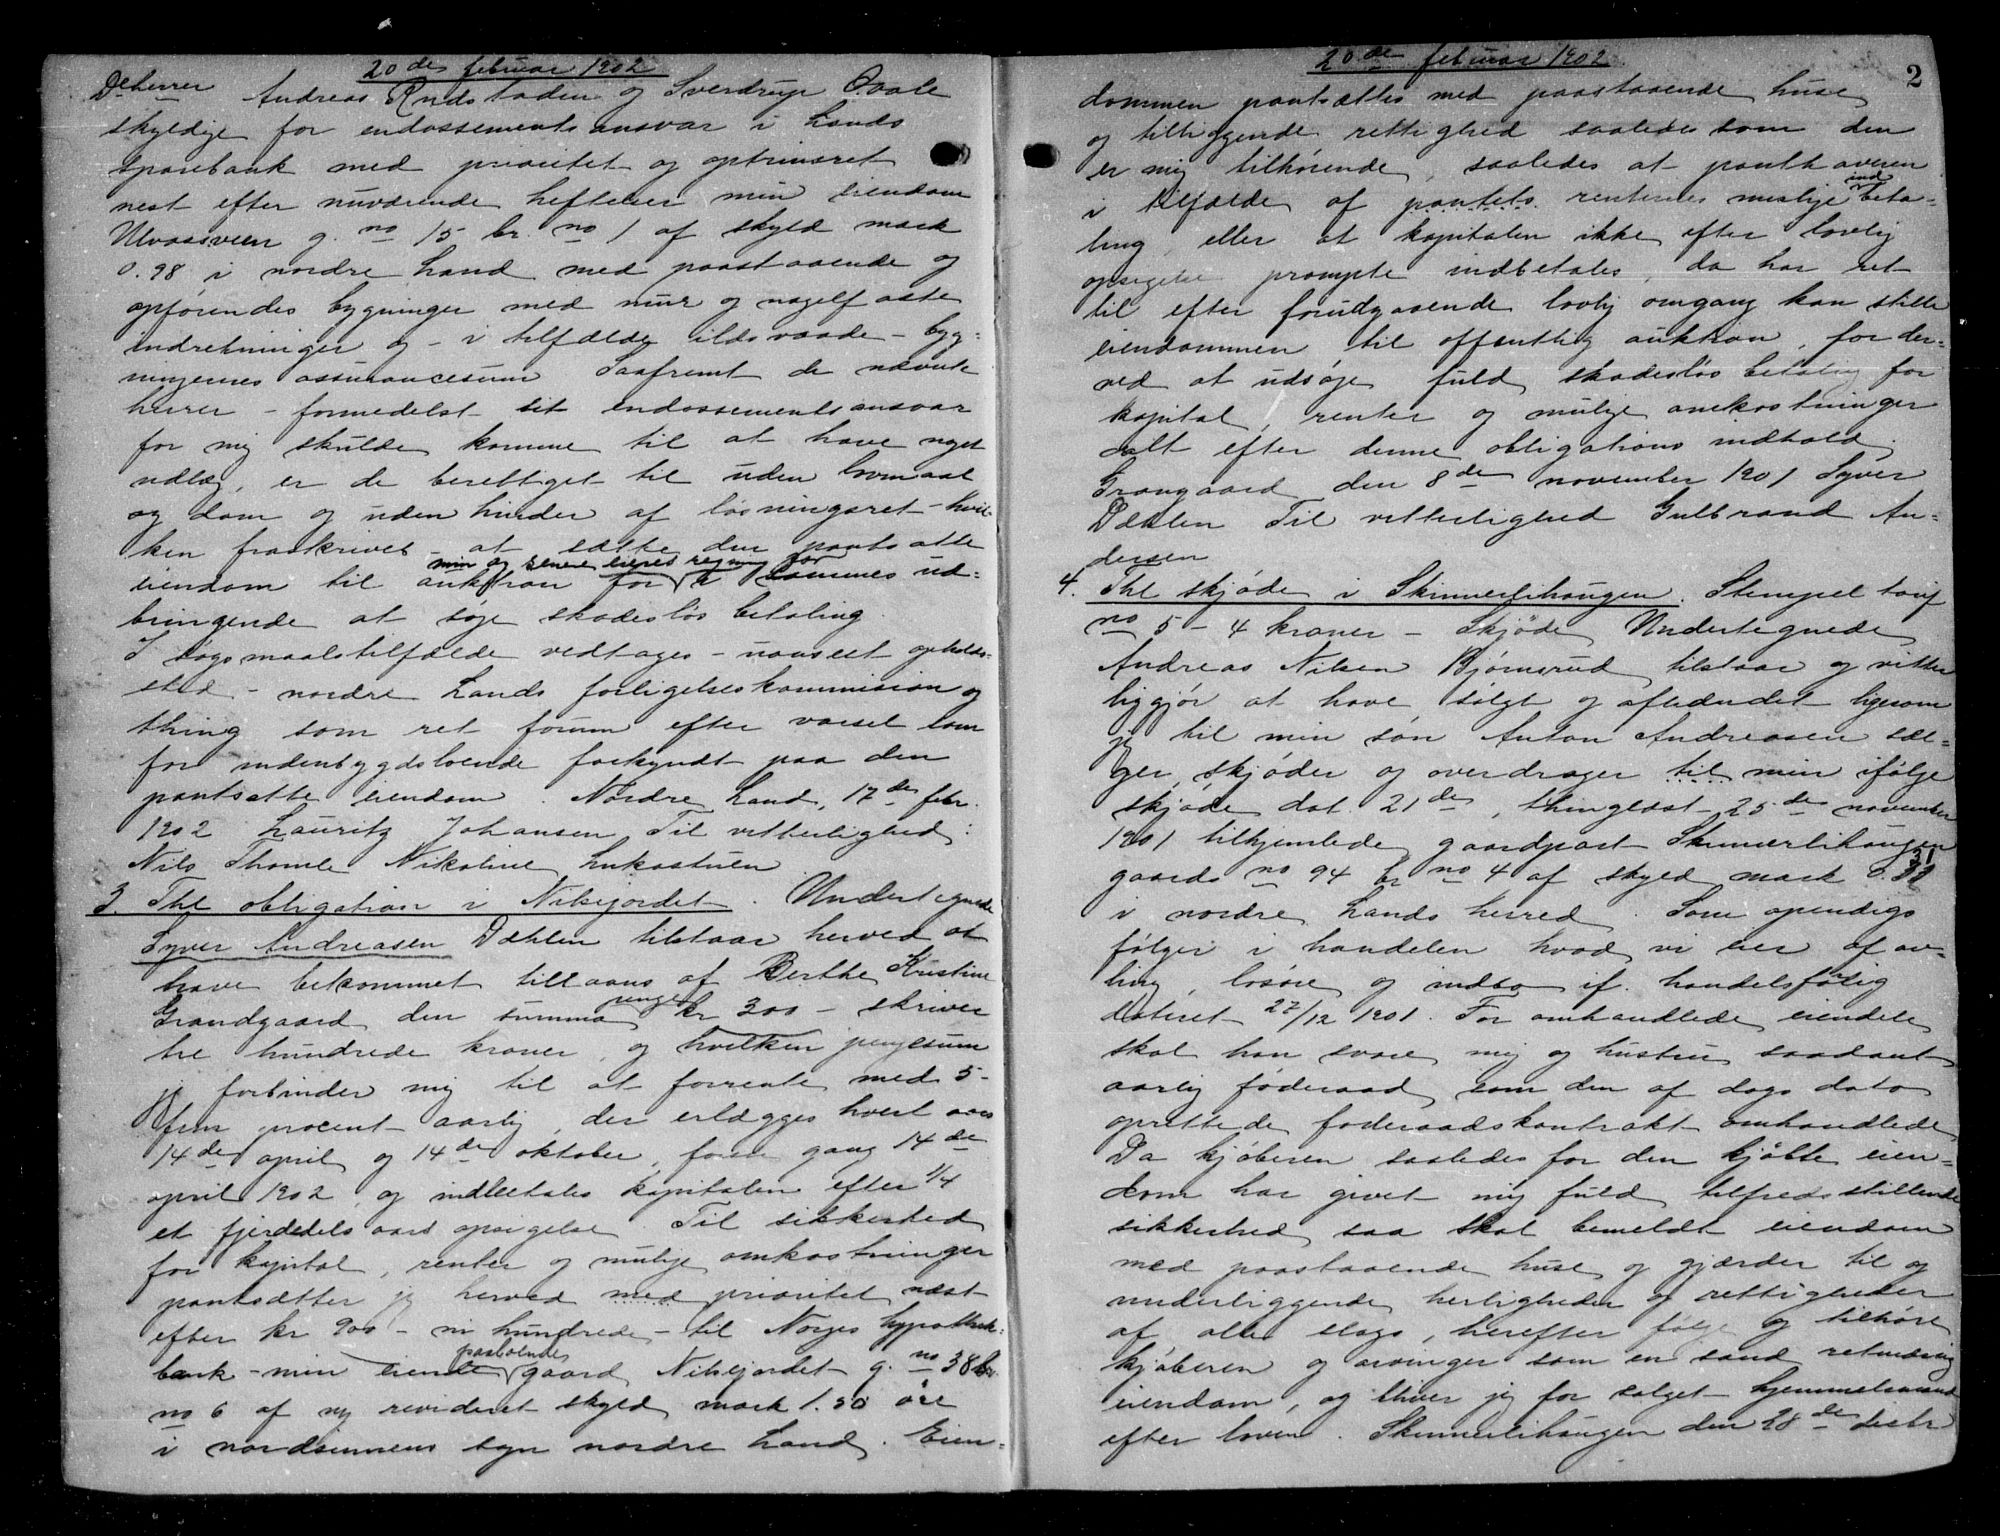 20de februar 1902
De herrer Andreas Rudstaden og Sverdrup Øvale
skyldige for endossementsansvar i Lands
sparebank med prioritet og optrinsret
nest efter nuværende heftelser min eiendom
Ulvaasveen g. no 15 br. no 1 af skyld mark
0.98 i nordre Land med paastaaende og
opførendes bygninger med mur og nagelfaste
indretninger og - i tilfælde ildsvaade - byg-
ningernes assurancesum Saafremt de nævnte
herrer - formedelst sit endossementsansvar
for mig skulde komme til at have noget
udlæg, er de berettiget til uden lovmaal
og dom og uden hinder af løsningsret - hvil-
ken fraskrives - at sætte den pantsatte
eiendom til auktion for min og senere eieres regning for i sammes ud-
bringende at søge skadesløs betaling.
I søgsmaalstilfælde vedtages - uanseet opholds-
sted - nordre Lands forligelseskommission og
thing som ret forum efter varsel som
for indenbygdsboende forkyndt paa den
pantsatte eiendom. Nordre Land, 17de febr.
1902 Lauritz Johansen Til vitterlighed:
Nils Thomle Nikoline Lukastuen
3. Thl obligation i Niksjordet. Undertegnede
Syver Andreasen Dæhlen tilstaar herved at
have bekommet tillaans af Berthe Kristine
Grandgaard den summa penge kr 300 - skriver
tre hundrede kroner, og hvilken pengesum
jeg forbinder mig til at forrente med 5-
fem procent aarlig, der erlægges hvert aars
14de april og 14de oktober, første gang 14de
april 1902 og indbetales kapitalen efter 1/4
et fjerdedels aars opsigelse. Til sikkerhed
for kapital, renter og mulige omkostninger
pantsætter jeg herved med prioritet næst
efter kr 900 - ni hundrede - til Norges hypothek-
bank - min eiende paaboende gaard Niksjordet g. no 38 br.
no 6 af ny revideret skyld mark 1.50 øre
i nordsinnens sogn nordre Land. Eien-
20de februar 1902
2
dommen pantsættes med paastaaende huse
og tilliggende rettighed saaledes som den
er mig tilhørende, saaledes at panthaveren
i tilfælde af pantets renternes mislige indbeta-
ling, eller at kapitalen ikke efter lovlig
opsigelse prompte indbetales, da har ret
til efter forudgaaende lovlig omgang kan stille
eiendommen til offentlig auktion, for der-
ved at udsøge fuld skadesløs betaling for
kapital, renter og mulige omkostninger
alt efter denne obligations indhold.
Grangaard den 8de november 1901 Syver
Dæhlen Til vitterlighed Gulbrand An-
dersen
4. Thl skjøde i Skinnerlihaugen. Stempel tarif
no 5 - 4 kroner - Skjøde Undertegnede
Andreas Nilsen Bjørnsrud tilstaar og vitter-
liggjør at have solgt og afhændet ligesom
jeg til min søn Anton Andreasen sæl-
ger, skjøder og overdrager til min ifølge
skjøde dat. 21de, thinglæst 25de november
1901 tilhjemlede gaardpart Skinnerlihaugen
gaards no 94 br no 4 af skyld mark 0.31
i nordre Lands herred. Som apendigs
følger i handelen hvad vi eier af av-
ling, løsøre og indbo if. handelsfølig
dateret 27/12 1901. For omhandlede eiendele
skal han svare mig og hustru saadant
aarlig føderaad som den af dags dato
oprettede føderaadskontrakt omhandlede
Da kjøberen saaledes for den kjøbte eien-
dom har givet mig fuld tilfredsstillende
sikkerhed saa skal bemeldt eiendom
med paastaaende huse og gjærder til og
underliggende herligheder og rettigheder
af alle slags, herefter følge og tilhøre
kjøberen og arvinger som en sand retmæssig
eiendom, og bliver jeg for salget hjemmelsmand
efter loven. Skinnerlihaugen den 28de decbr